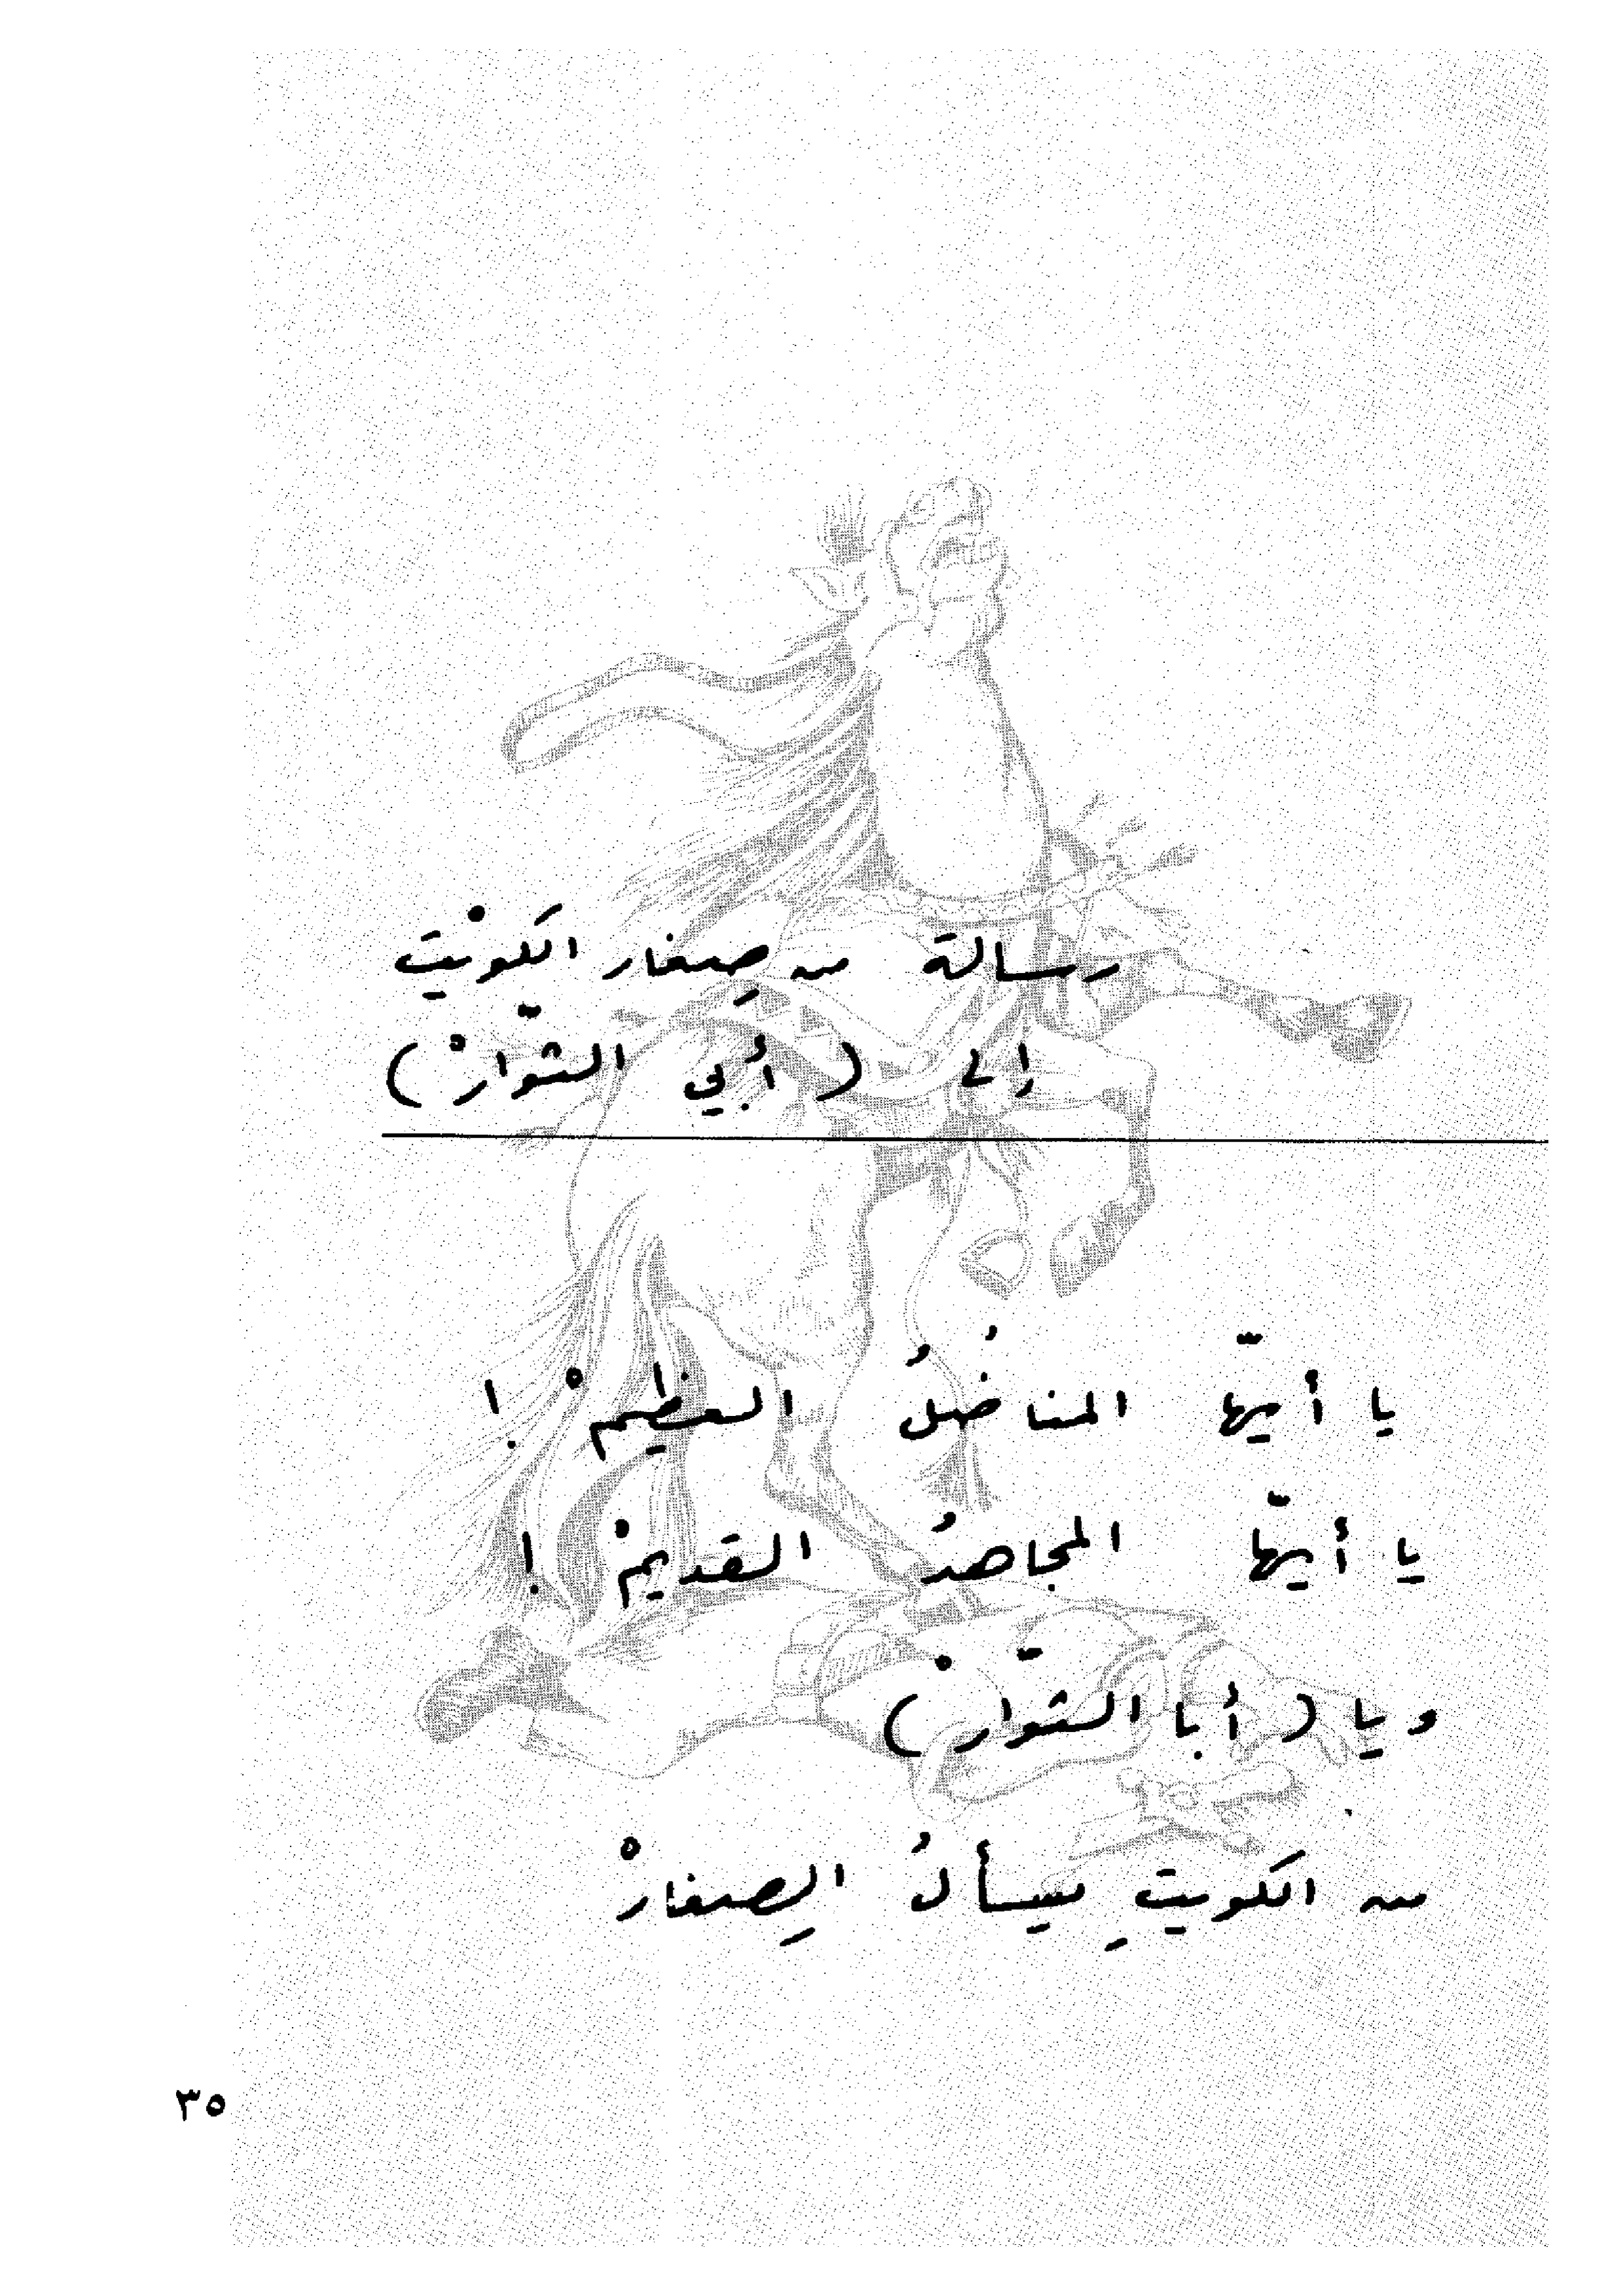 رسالة من صِغار الكَويْت
إلى ( أبي الثوّارْ )
يا أيّها المناضُلُ العظيمْ !
يا أيّها المجاهدُ القديمْ !
ويا ( أبا الثوّارْ )
من الكويتِ يسألُ الصِغارْ
٣٥